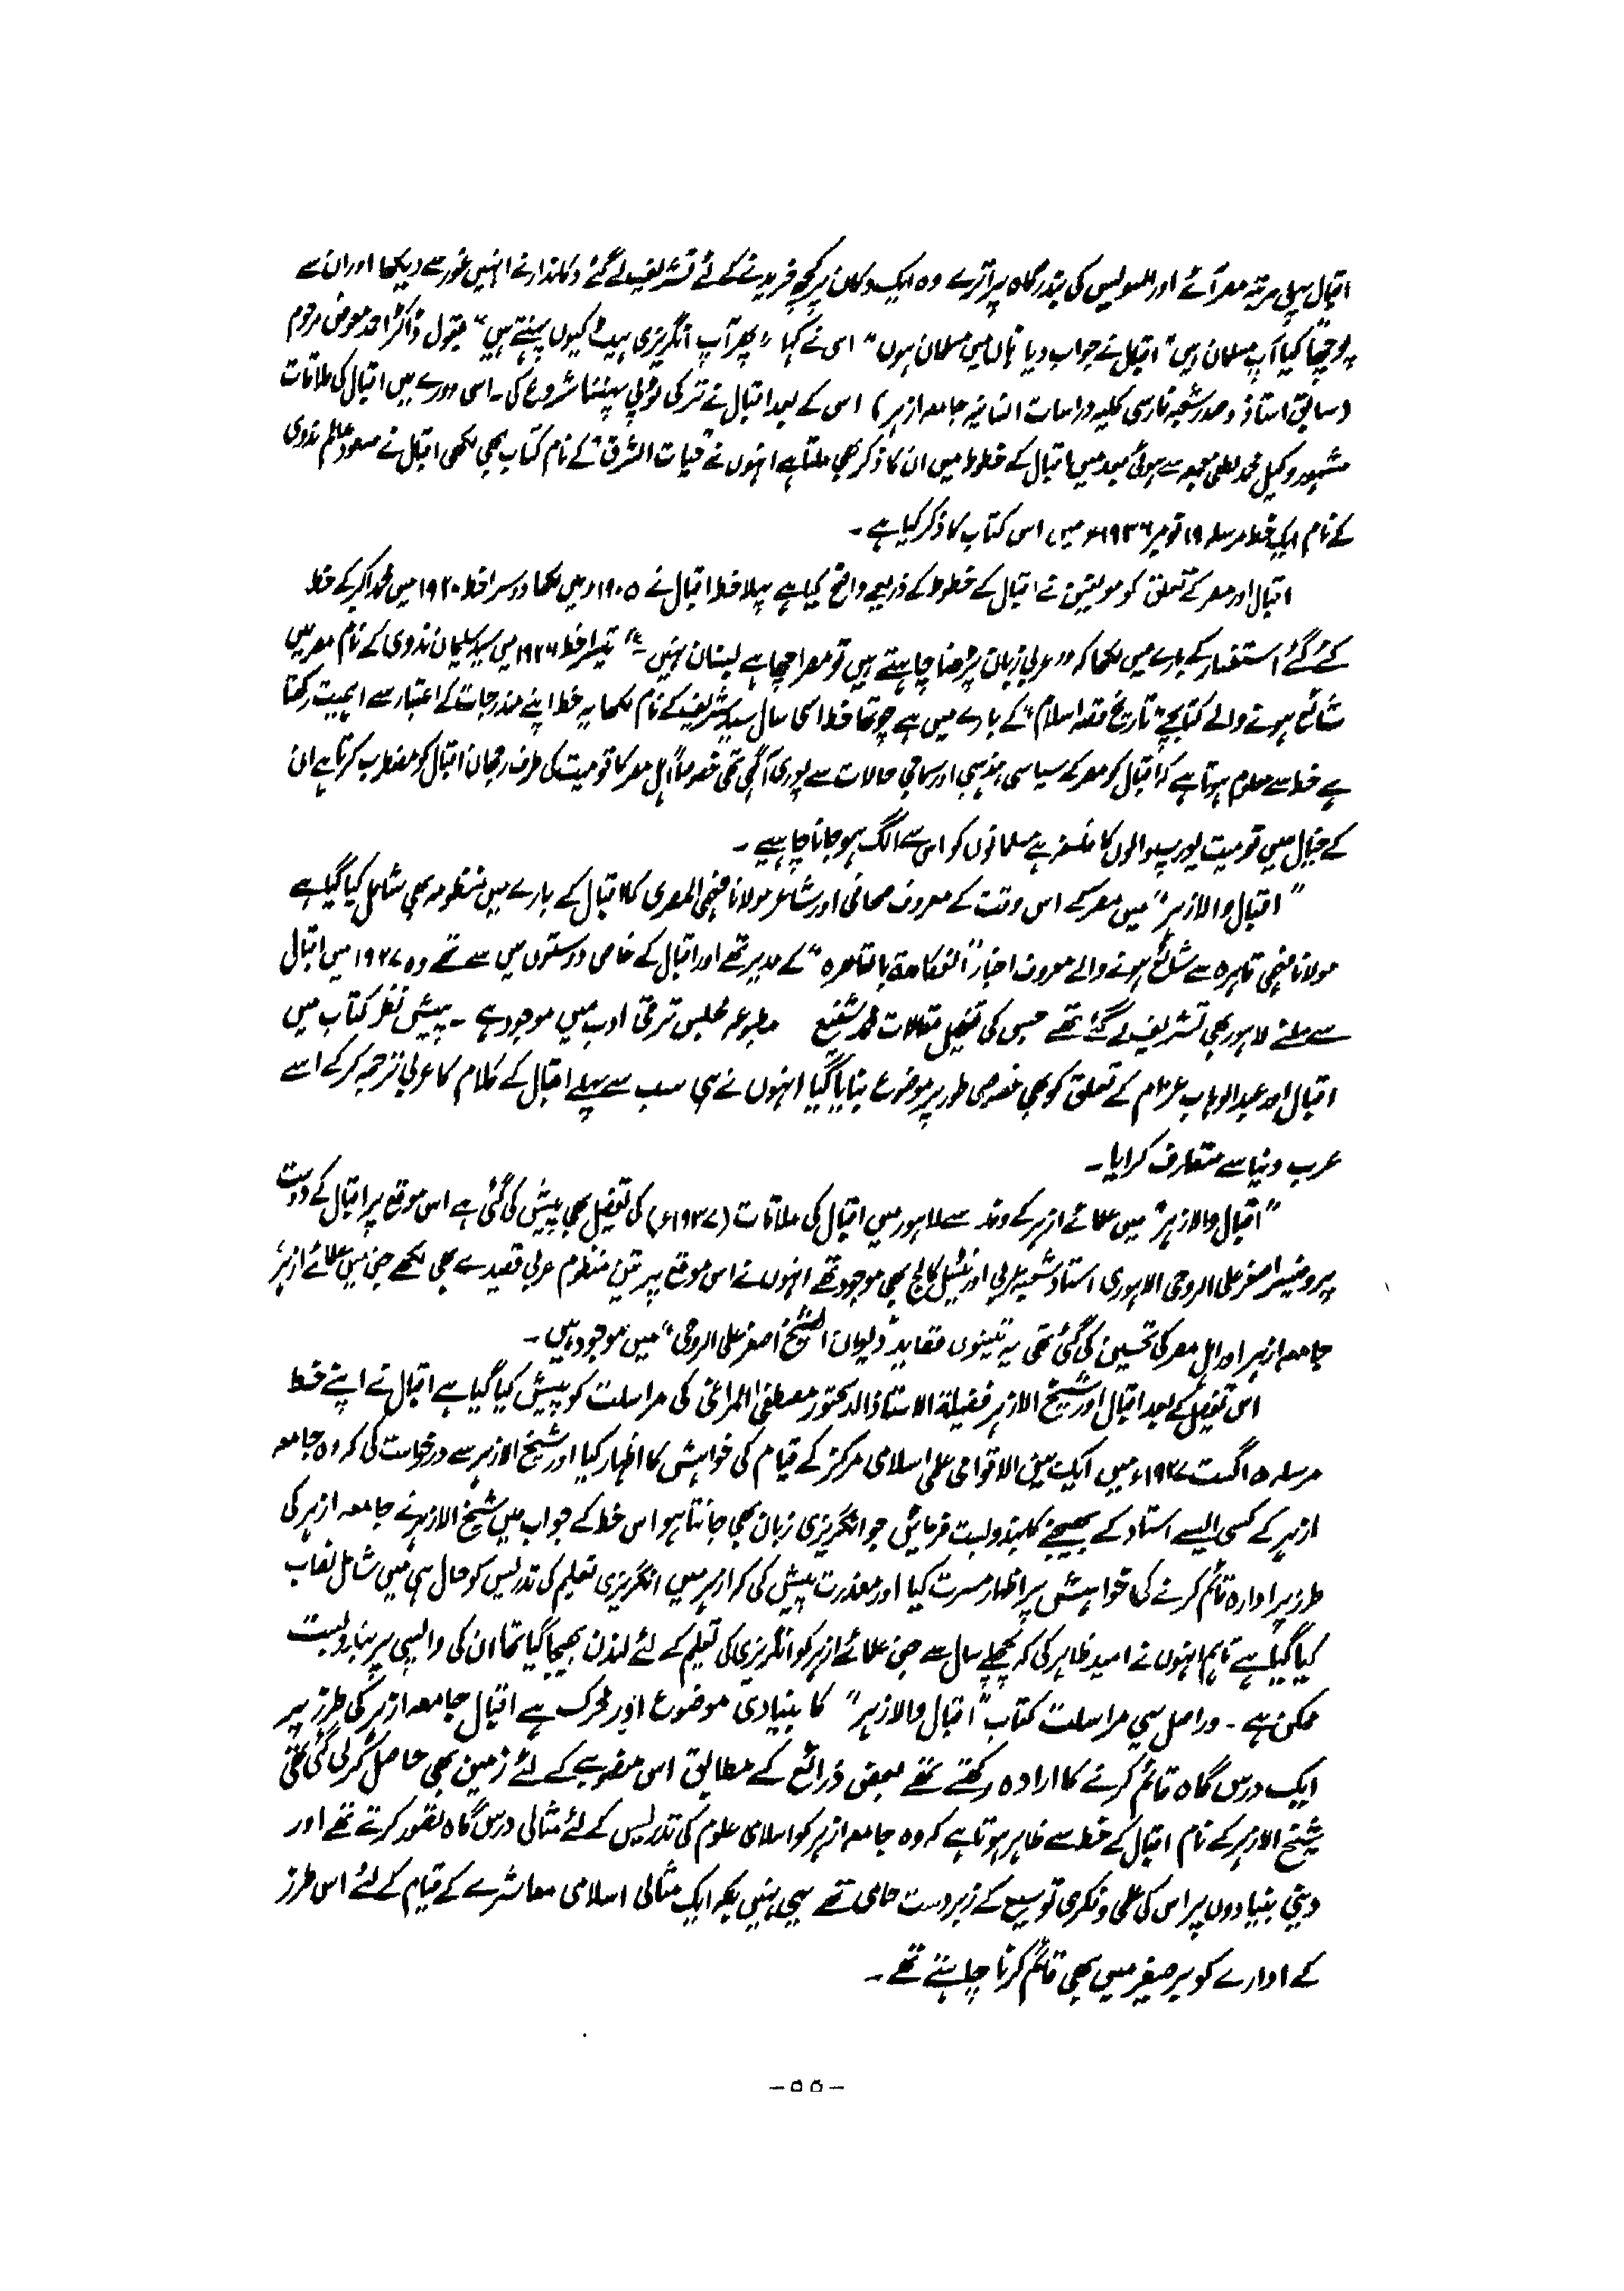 اقبال پہلی مرتبہ مصر آئے اور السویس کی بندرگاہ پر اترے وہ ایک دکان پر کچھ خریدنے کے لئے تشریف لے گئے دکاندار نے انہیں غور سے دیکھا اور ان سے
پوچھا کیا آپ مسلمان ہیں" اقبال نے جواب دیا ہاں میں مسلمان ہوں" اس نے کہا "پھر آپ انگریزی ہیٹ کیوں پہنتے ہیں" بقول ڈاکٹر احمد معوض مرحوم
(سابق استاذ و صدر شعبہ فارسی کلیہ دراسات انسانیہ جامعہ ازہر) اس کے بعد اقبال نے ترکی ٹوپی پہننا شروع کی۔ اسی دورے میں اقبال کی ملاقات
مشہور وکیل محمد لطفی جمعہ سے ہوئی بعد میں اقبال کے خطوط میں ان کا ذکر بھی ملتا ہے انہوں نے "حیات الشرق" کے نام کتاب بھی لکھی اقبال نے مسعود عالم ندوی
کے نام ایک خط مرسلہ ۱۹ نومبر ۱۹۳۶ء میں اس کتاب کا ذکر کیا ہے ۔
اقبال اور مصر کے تعلق کو مولفین نے اقبال کے خطوط کے ذریعے واضح کیا ہے پہلا خط اقبال نے ۱۹۰۵ء میں لکھا دوسرا خط ۱۹۲۰ میں محمد اکبر کے خط
کئے گئے استفسار کے بارے میں لکھا کہ "عربی زبان پڑھنا چاہتے ہیں تو مصر اچھا ہے لبنان نہیں" تیسرا خط ۱۹۲۶ میں سید سلیمان ندوی کے نام مصر میں
شائع ہونے والے کتابچے "تاریخ فقہ اسلام" کے بارے میں ہے چوتھا خط اسی سال سید شریف کے نام لکھا یہ خط اپنے مندرجات کے اعتبار سے اہمیت رکھتا
ہے خط سے معلوم ہوتا ہے کہ اقبال کو مصر کے سیاسی، مذہبی اور سماجی حالات سے پوری آگہی تھی خصوصاً اہل مصر کا قومیت کی طرف رجحان اقبال کو مضطرب کرتا ہے ان
کے خیال میں قومیت یورپ والوں کا فلسفہ ہے مسلمانوں کو اس سے الگ ہو جانا چاہیے ۔
"اقبال والازہر" میں مصر کے اس وقت کے معروف صحافی اور شاعر مولانا فتحی المصری کا اقبال کے بارے میں منظومہ بھی شامل کیا گیا ہے
مولانا فتحی قاہرہ سے شائع ہونے والے معروف اخبار "الفکاھة بالقاھرہ" کے مدیر تھے اور اقبال کے خاص دوستوں میں سے تھے وہ ۱۹۳۷ میں اقبال
سے ملنے لاہور بھی تشریف لے گئے تھے جس کی تفصیل مقالات محمد شفیع مطبوعہ مجلس ترقی ادب میں موجود ہے ۔ پیش نظر کتاب میں
اقبال اور عبدالوہاب عزام کے تعلق کو بھی خصوصی طور پر موضوع بنایا گیا انہوں نے ہی سب سے پہلے اقبال کے کلام کا عربی ترجمہ کر کے اسے
عرب دنیا سے متعارف کرایا ۔
"اقبال والازہر" میں علمائے ازہر کے وفد سے لاہور میں اقبال کی ملاقات (۱۹۳۷ء) کی تفصیل بھی پیش کی گئی ہے اس موقع پر اقبال کے دوست
پروفیسر اصغر علی الروحی الاہوری استاد شعبہ عربی اورینٹیل کالج بھی موجود تھے انہوں نے اس موقع پر تین منظوم عربی قصیدے بھی لکھے جن میں علمائے ازہر،
جامعہ ازہر اور اہل مصر کی تحسین کی گئی تھی یہ تینوں قصاید "دیوان الشیخ اصغر علی الروحی" میں موجود ہیں ۔
اس تفصیل کے بعد اقبال اور شیخ الازہر فضیلة الاستاذ الدکتور مصطفی المراغی کی مراسلت کو پیش کیا گیا ہے اقبال نے اپنے خط
مرسلہ ۵ اگست ۱۹۳۷ء میں ایک بین الاقوامی علمی اسلامی مرکز کے قیام کی خواہش کا اظہار کیا اور شیخ الازہر سے درخواست کی کہ وہ جامعہ
ازہر کے کسی ایسے استاد کے بھیجنے کا بندوبست فرمائیں جو انگریزی زبان بھی جانتا ہو اس خط کے جواب میں شیخ الازہر نے جامعہ ازہر کی
طرز پر ادارہ قائم کرنے کی خواہش پر اظہار مسرت کیا اور معذرت پیش کی کہ ازہر میں انگریزی تعلیم کی تدریس کو حال ہی میں شامل نصاب
کیا گیا ہے تاہم انہوں نے امید ظاہر کی کہ پچھلے سال سے جن علمائے ازہر کو انگریزی کی تعلیم کے لئے لندن بھیجا گیا تھا ان کی واپسی پر بندوبست
ممکن ہے ۔ دراصل یہی مراسلت کتاب "اقبال والازہر" کا بنیادی موضوع اور محرک ہے اقبال جامعہ ازہر کی طرز پر
ایک درس گاہ قائم کرنے کا ارادہ رکھتے تھے بعض ذرائع کے مطابق اس منصوبے کے لئے زمین بھی حاصل کر لی گئی تھی
شیخ الازہر کے نام اقبال کے خط سے ظاہر ہوتا ہے کہ وہ جامعہ ازہر کو اسلامی علوم کی تدریس کے لئے مثالی درس گاہ تصور کرتے تھے اور
دینی بنیادوں پر اس کی علمی و فکری توسیع کے زبردست حامی تھے یہی نہیں بلکہ ایک مثالی اسلامی معاشرے کے قیام کے لئے اس طرز
کے ادارے کو برصغیر میں بھی قائم کرنا چاہتے تھے ۔
-۵۵-